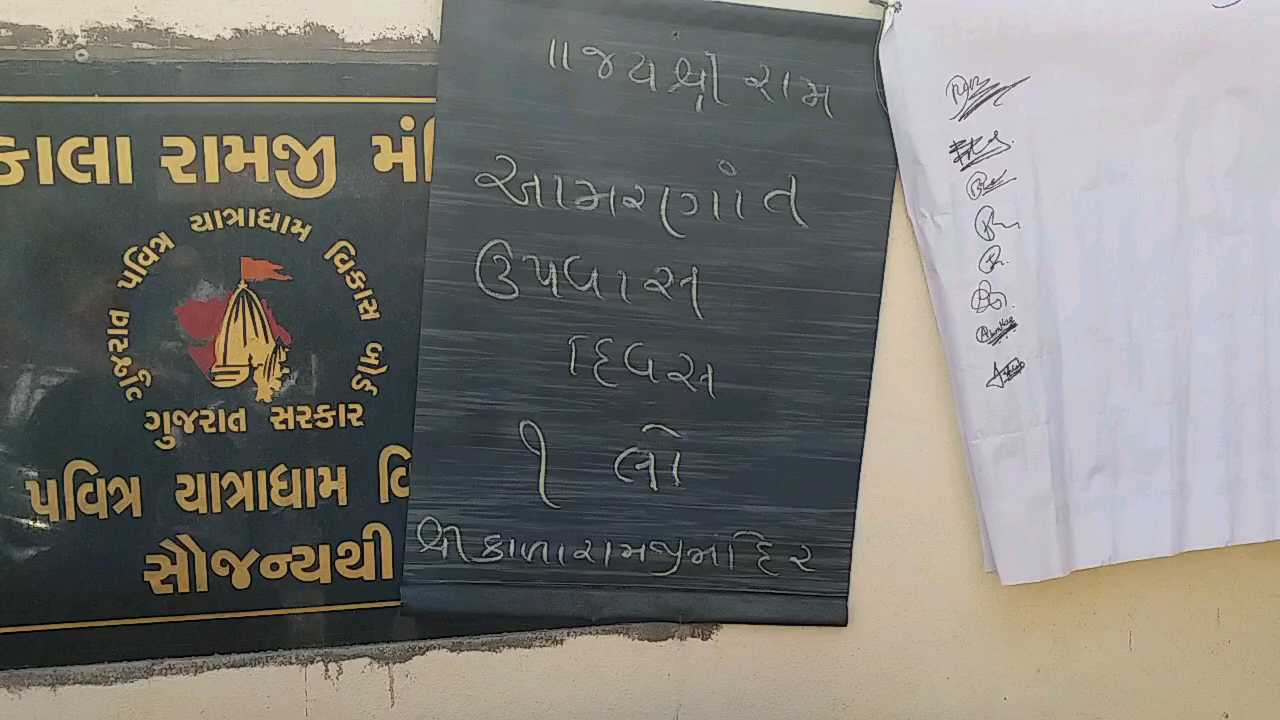 કાલા રામજી મં
ગુજરાત પવિત્ર યાત્રાધામ વિકાસ બોર્ડ
ગુજરાત સરકાર
પવિત્ર યાત્રાધામ વિ
સૌજન્યથી
॥જય શ્રી રામ
આમરણાંત
ઉપવાસ
દિવસ
૧ લો
શ્રી કાળારામજી મંદિર